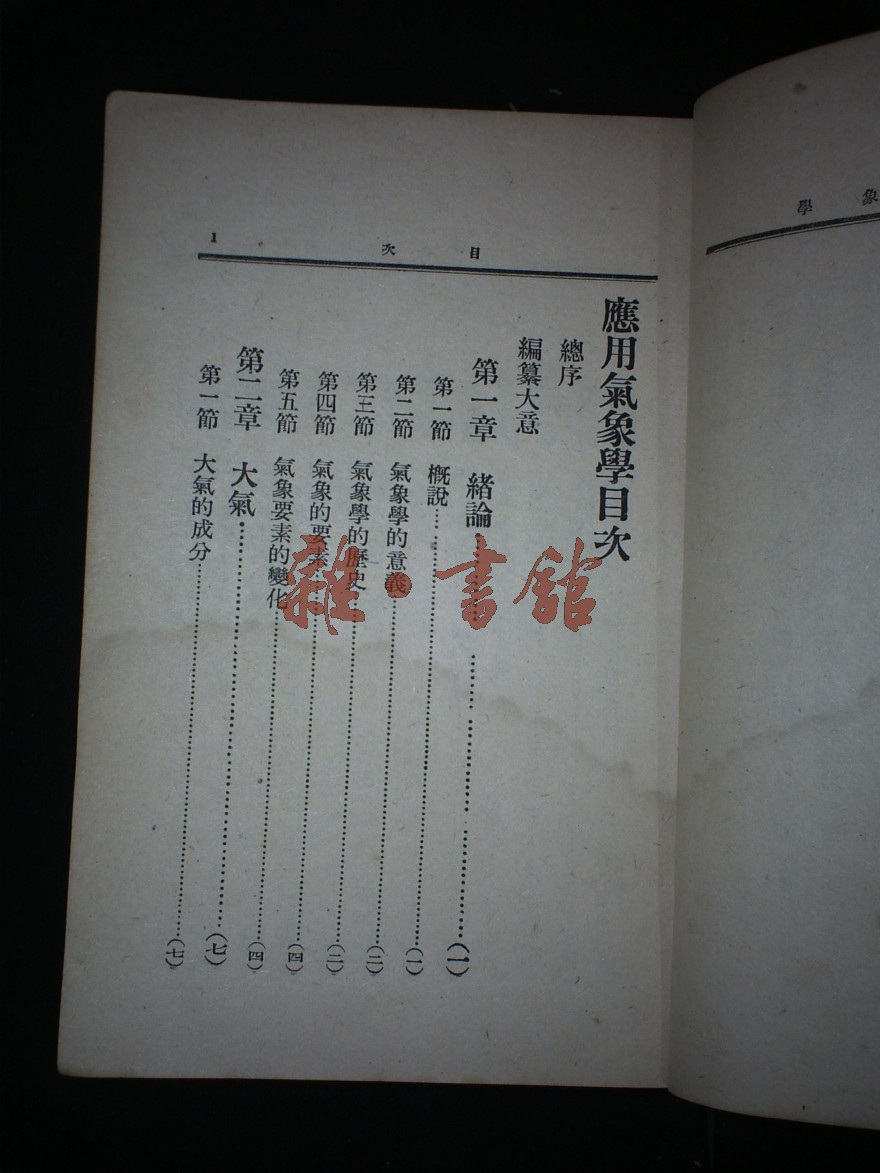 目次 1
應用氣象學目次
總序
編纂大意
第一章 緒論……(一)
第一節 概說……(一)
第二節 氣象學的意義……(二)
第三節 氣象學的歷史……(二)
第四節 氣象的要素……(四)
第五節 氣象要素的變化……(四)
第二章 大氣……(七)
第一節 大氣的成分……(七)
象學
雜·書館